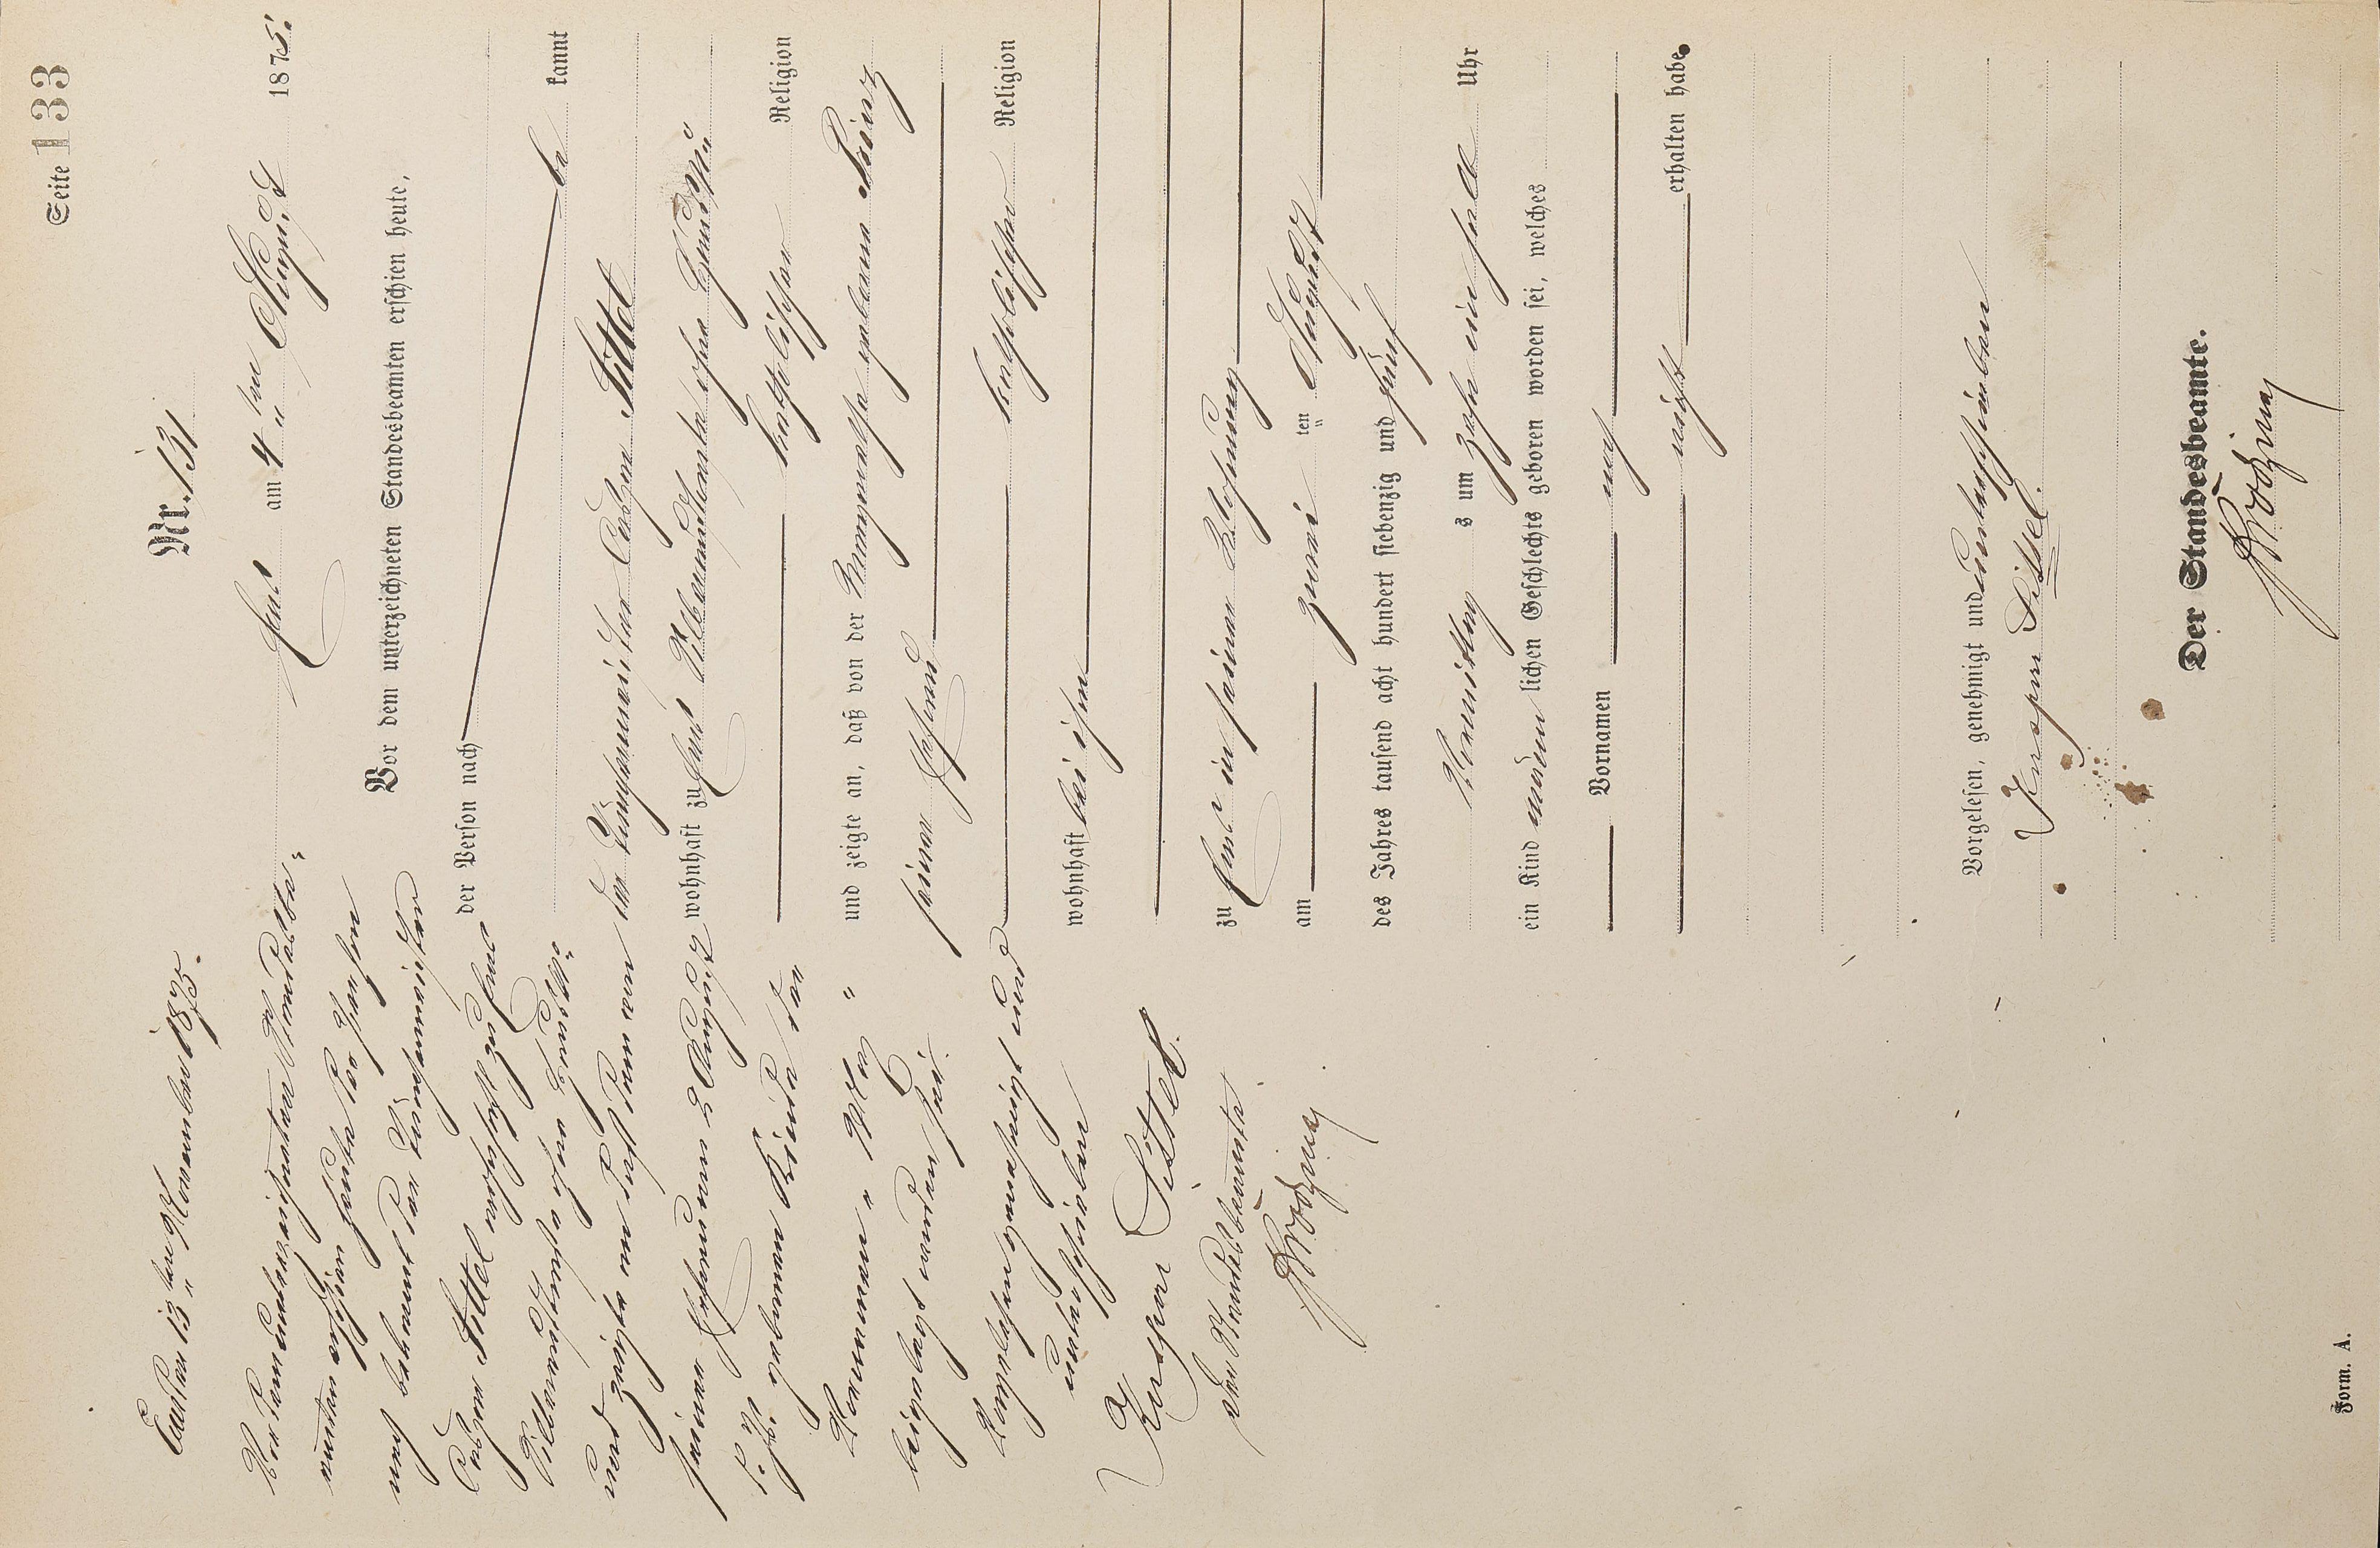 Seite 133
Nr. 131
am 4 ten August 1875.
Vor dem unterzeichneten Standesbeamten erschien heute,
der Person nach
be kannt
der Tünchermeister Caspar Sittel
wohnhaft zu
katholischer Religion
und zeigte an, daß von der Margarethe geborene Prinz
seiner Ehefrau
katholischer Religion
wohnhaft bei ihm
zu in seiner Wohnung
am zwei ten August
des Jahres tausend acht hundert siebenzig und fünf
Vormittag s um zehn ein halb Uhr
ein Kind männ lichen Geschlechts geboren worden sei, welches
noch Vornamen
nicht erhalten habe
Vorgelesen, genehmigt und unterschrieben
Kaspar Sittel.
Der Standesbeamte.
den 13 ten November 1875.
Vor dem unterzeichneten Standesbe-
amten erschien heute der Person
nach bekannt der Tünchermeister
Caspar Sittel wohnhaft zu
und zeigte an daß dem von
seiner Ehefrau am 2 August
geborenen Kinde der
Vornamen " Max "
beigelegt worden sei.
Vorgelesen genehmigt und
unterschrieben
Kaspar Sittel.
Der Standesbeamte
Form. A.